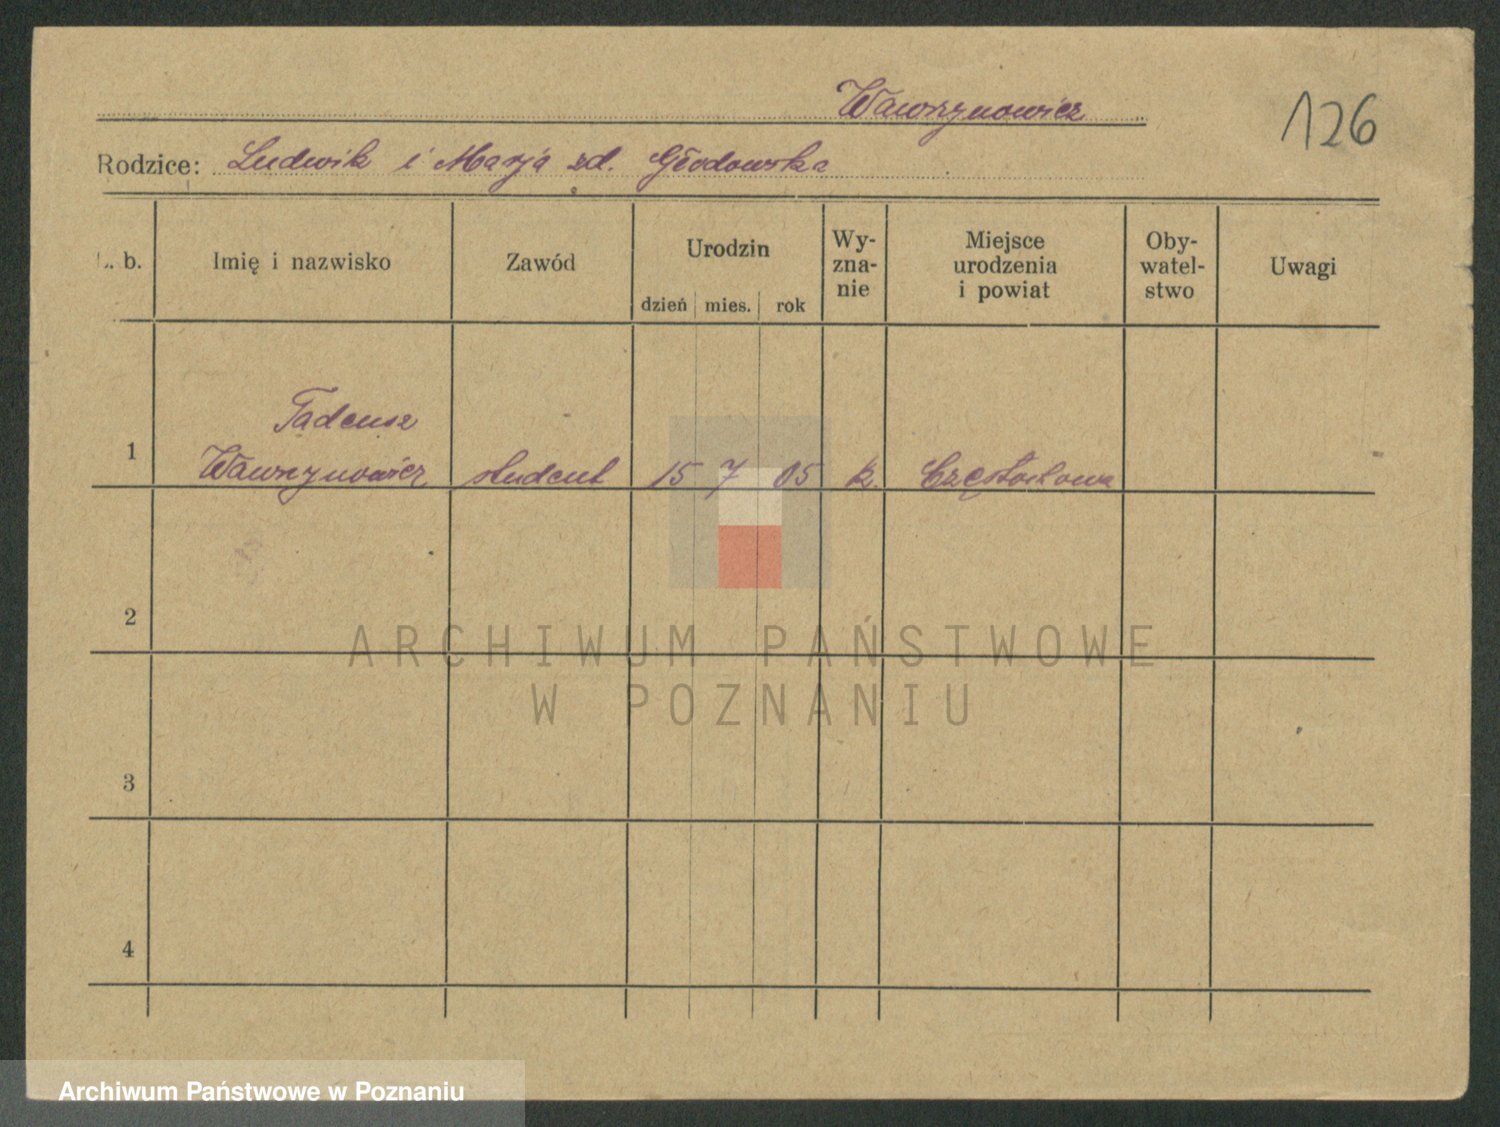 Wawrzynowicz
126
Rodzice: Ludwik i Marja zd. Głodowska
L. b. Imię i nazwisko Zawód Urodzin Wy- Miejsce Oby- Uwagi
zna- urodzenia watel-
nie i powiat stwo
dzień mies. rok
Tadeusz
1 Wawrzynowicz student 15 7 05 k. Częstochowa
2
ARCHIWUM PAŃSTWOWE
W POZNANIU
3
4
Archiwum Państwowe w Poznaniu